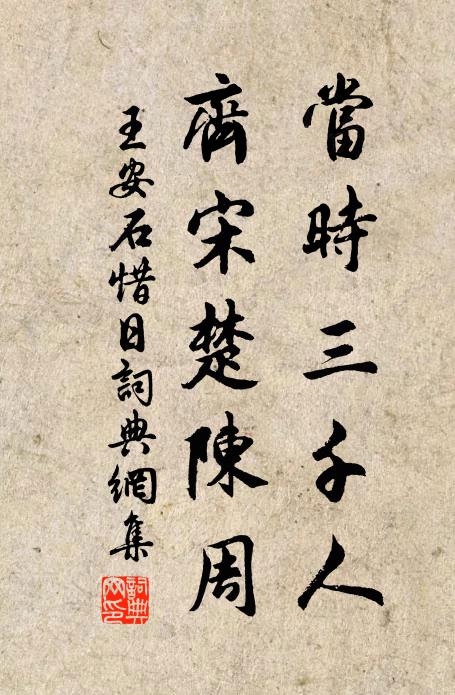 當時三千人
齊宋楚陳周
王安石惜日詞典網集
詞典網印